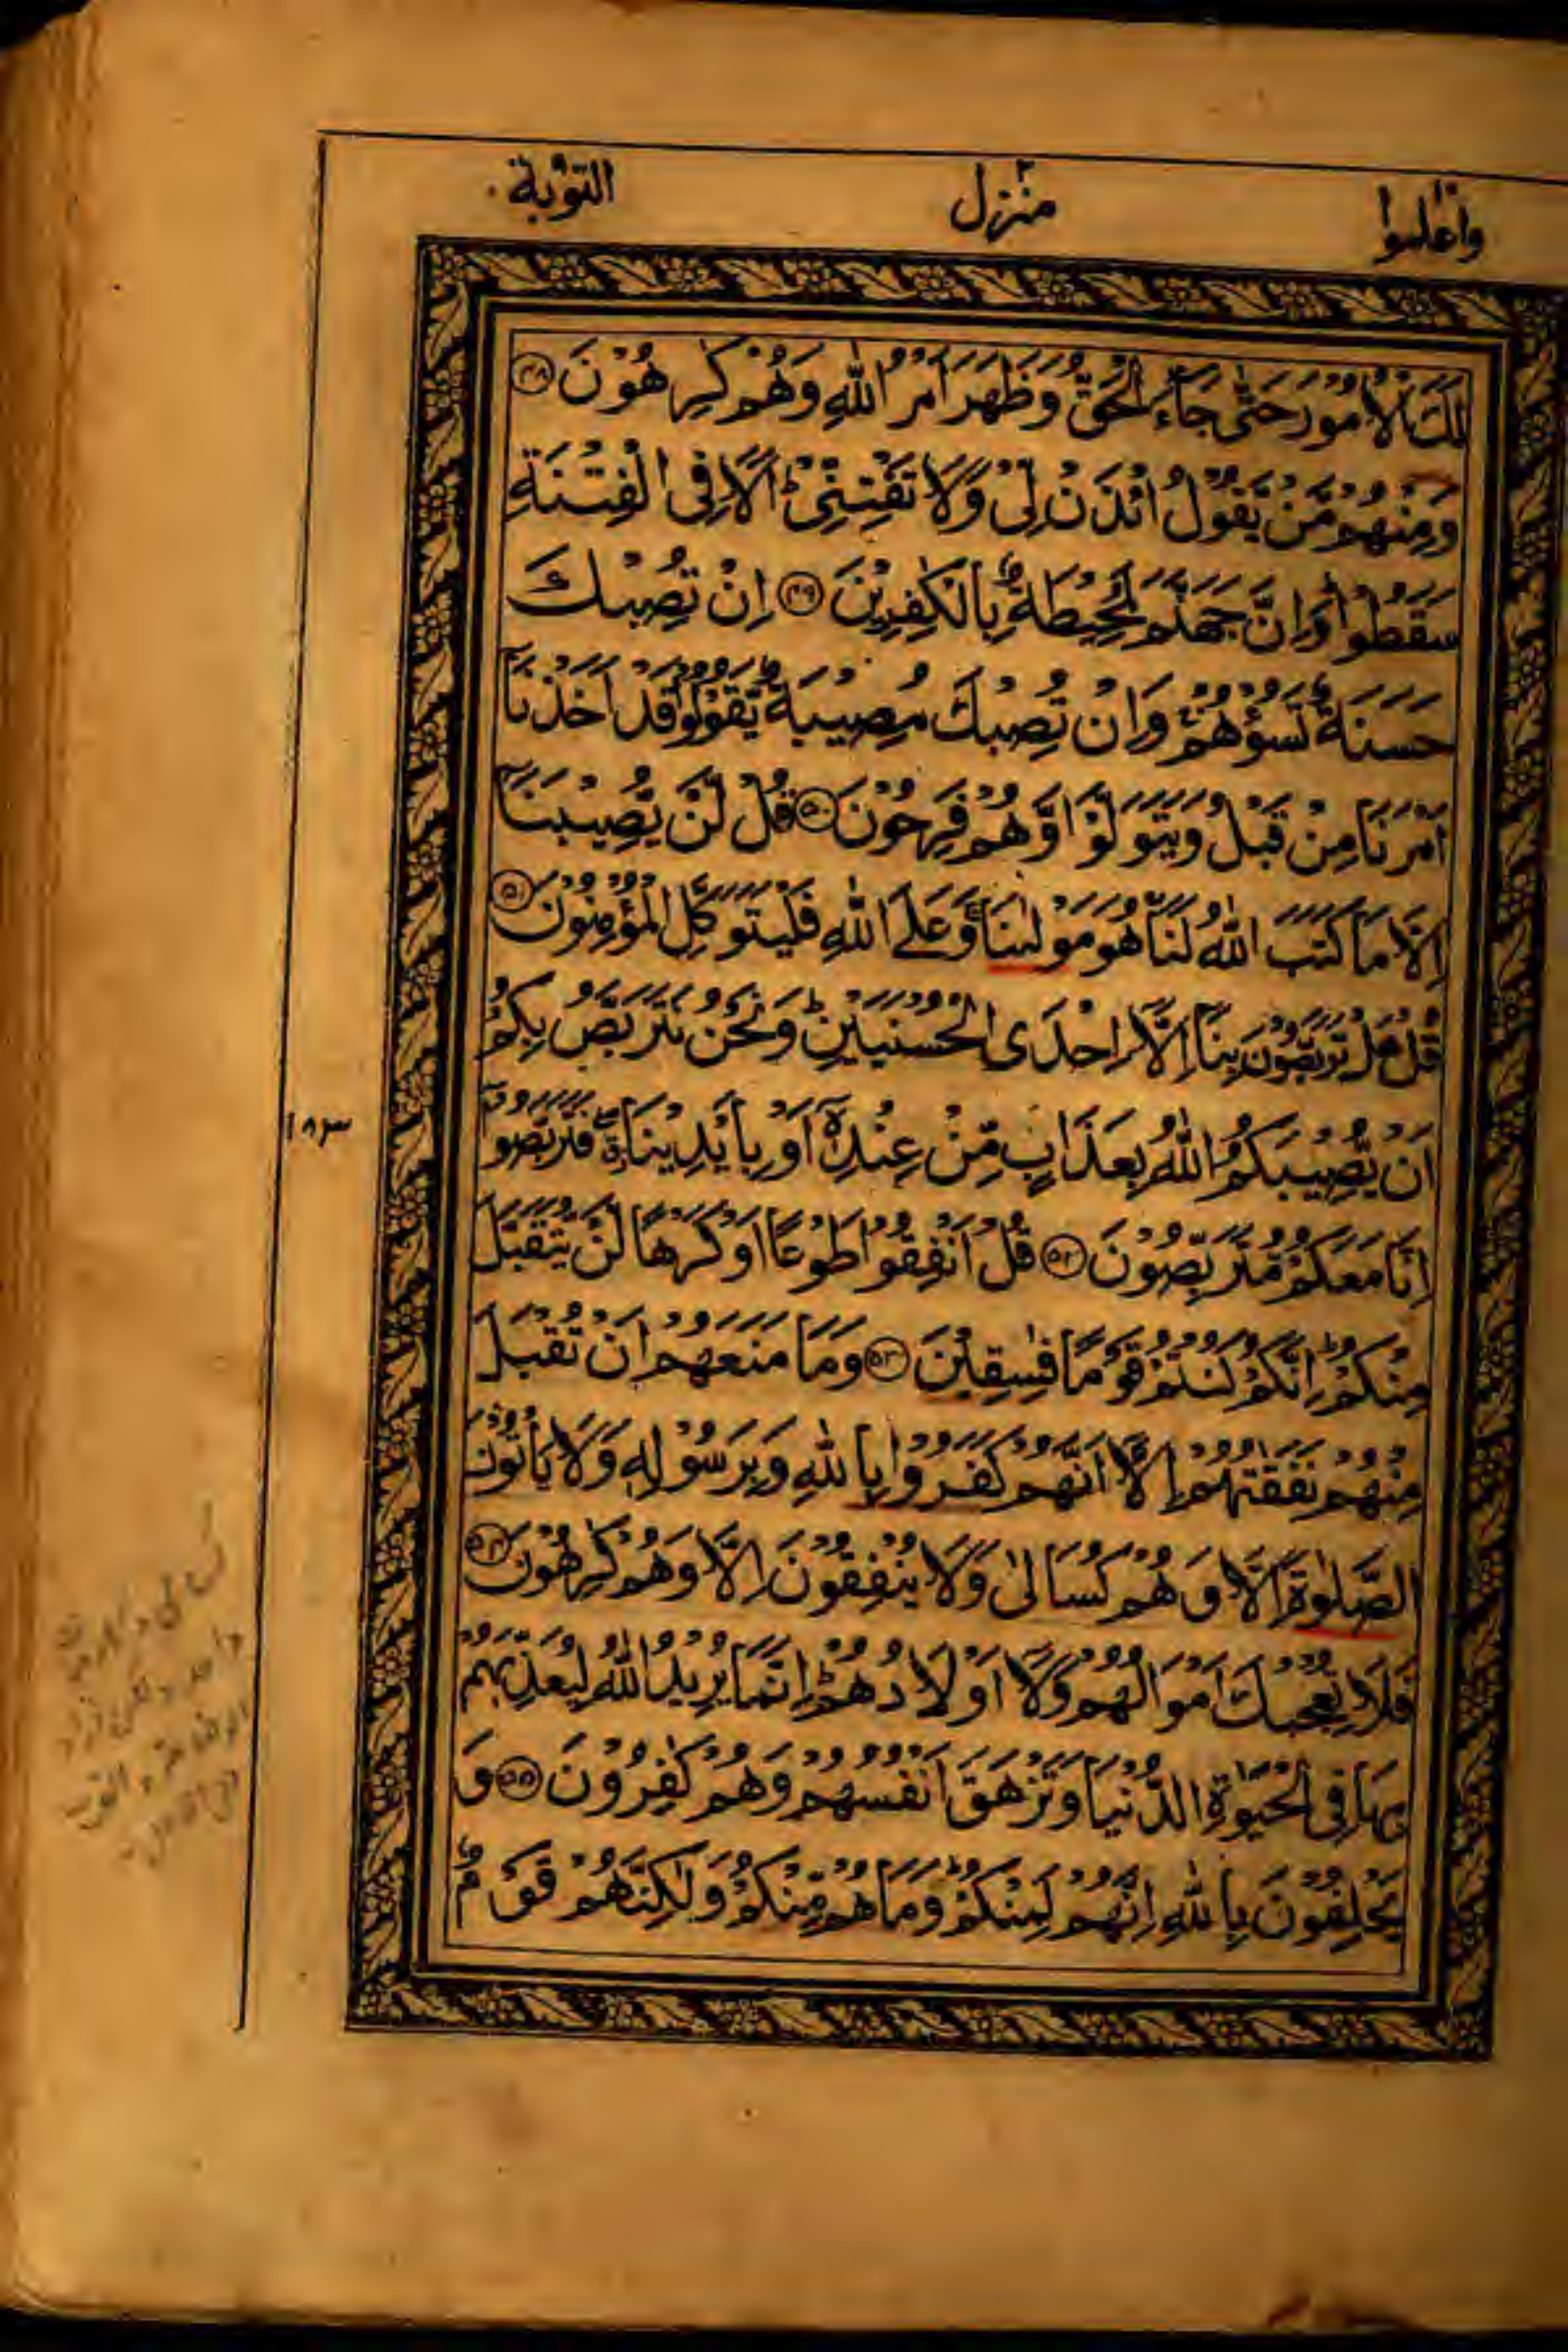 واعلموا
منزل ٢
التوبة
لَكَ الْاُمُوْرَ حَتّٰى جَآءَ الْحَقُّ وَظَهَرَ اَمْرُ اللّٰهِ وَهُمْ كٰرِهُوْنَ ﴿۴۸﴾
وَمِنْهُمْ مَّنْ يَّقُوْلُ ائْذَنْ لِّىْ وَلَا تَفْتِنِّىْ ؕ اَلَا فِى الْفِتْنَةِ
سَقَطُوْا ؕ وَاِنَّ جَهَنَّمَ لَمُحِيْطَةٌۢ بِالْكٰفِرِيْنَ ﴿۴۹﴾ اِنْ تُصِبْكَ
حَسَنَةٌ تَسُؤْهُمْ ۚ وَاِنْ تُصِبْكَ مُصِيْبَةٌ يَّقُوْلُوْا قَدْ اَخَذْنَاۤ
اَمْرَنَا مِنْ قَبْلُ وَيَتَوَلَّوْا وَّهُمْ فَرِحُوْنَ ﴿۵۰﴾ قُلْ لَّنْ يُّصِيْبَنَاۤ
اِلَّا مَا كَتَبَ اللّٰهُ لَنَا هُوَ مَوْلٰىنَا ۚ وَعَلَى اللّٰهِ فَلْيَتَوَكَّلِ الْمُؤْمِنُوْنَ ﴿۵۱﴾
قُلْ هَلْ تَرَبَّصُوْنَ بِنَاۤ اِلَّاۤ اِحْدَى الْحُسْنَيَيْنِ ؕ وَنَحْنُ نَتَرَبَّصُ بِكُمْ
اَنْ يُّصِيْبَكُمُ اللّٰهُ بِعَذَابٍ مِّنْ عِنْدِهٖۤ اَوْ بِاَيْدِيْنَا ۖ فَتَرَبَّصُوْۤا
اِنَّا مَعَكُمْ مُّتَرَبِّصُوْنَ ﴿۵۲﴾ قُلْ اَنْفِقُوْا طَوْعًا اَوْ كَرْهًا لَّنْ يُّتَقَبَّلَ
مِنْكُمْ ؕ اِنَّكُمْ كُنْتُمْ قَوْمًا فٰسِقِيْنَ ﴿۵۳﴾ وَمَا مَنَعَهُمْ اَنْ تُقْبَلَ
مِنْهُمْ نَفَقٰتُهُمْ اِلَّاۤ اَنَّهُمْ كَفَرُوْا بِاللّٰهِ وَبِرَسُوْلِهٖ وَلَا يَاْتُوْنَ
الصَّلٰوةَ اِلَّا وَهُمْ كُسَالٰى وَلَا يُنْفِقُوْنَ اِلَّا وَهُمْ كٰرِهُوْنَ ﴿۵۴﴾
فَلَا تُعْجِبْكَ اَمْوَالُهُمْ وَلَاۤ اَوْلَادُهُمْ ؕ اِنَّمَا يُرِيْدُ اللّٰهُ لِيُعَذِّبَهُمْ
بِهَا فِى الْحَيٰوةِ الدُّنْيَا وَتَزْهَقَ اَنْفُسُهُمْ وَهُمْ كٰفِرُوْنَ ﴿۵۵﴾ وَ
يَحْلِفُوْنَ بِاللّٰهِ اِنَّهُمْ لَمِنْكُمْ ؕ وَمَا هُمْ مِّنْكُمْ وَلٰكِنَّهُمْ قَوْمٌ
۱۸۳